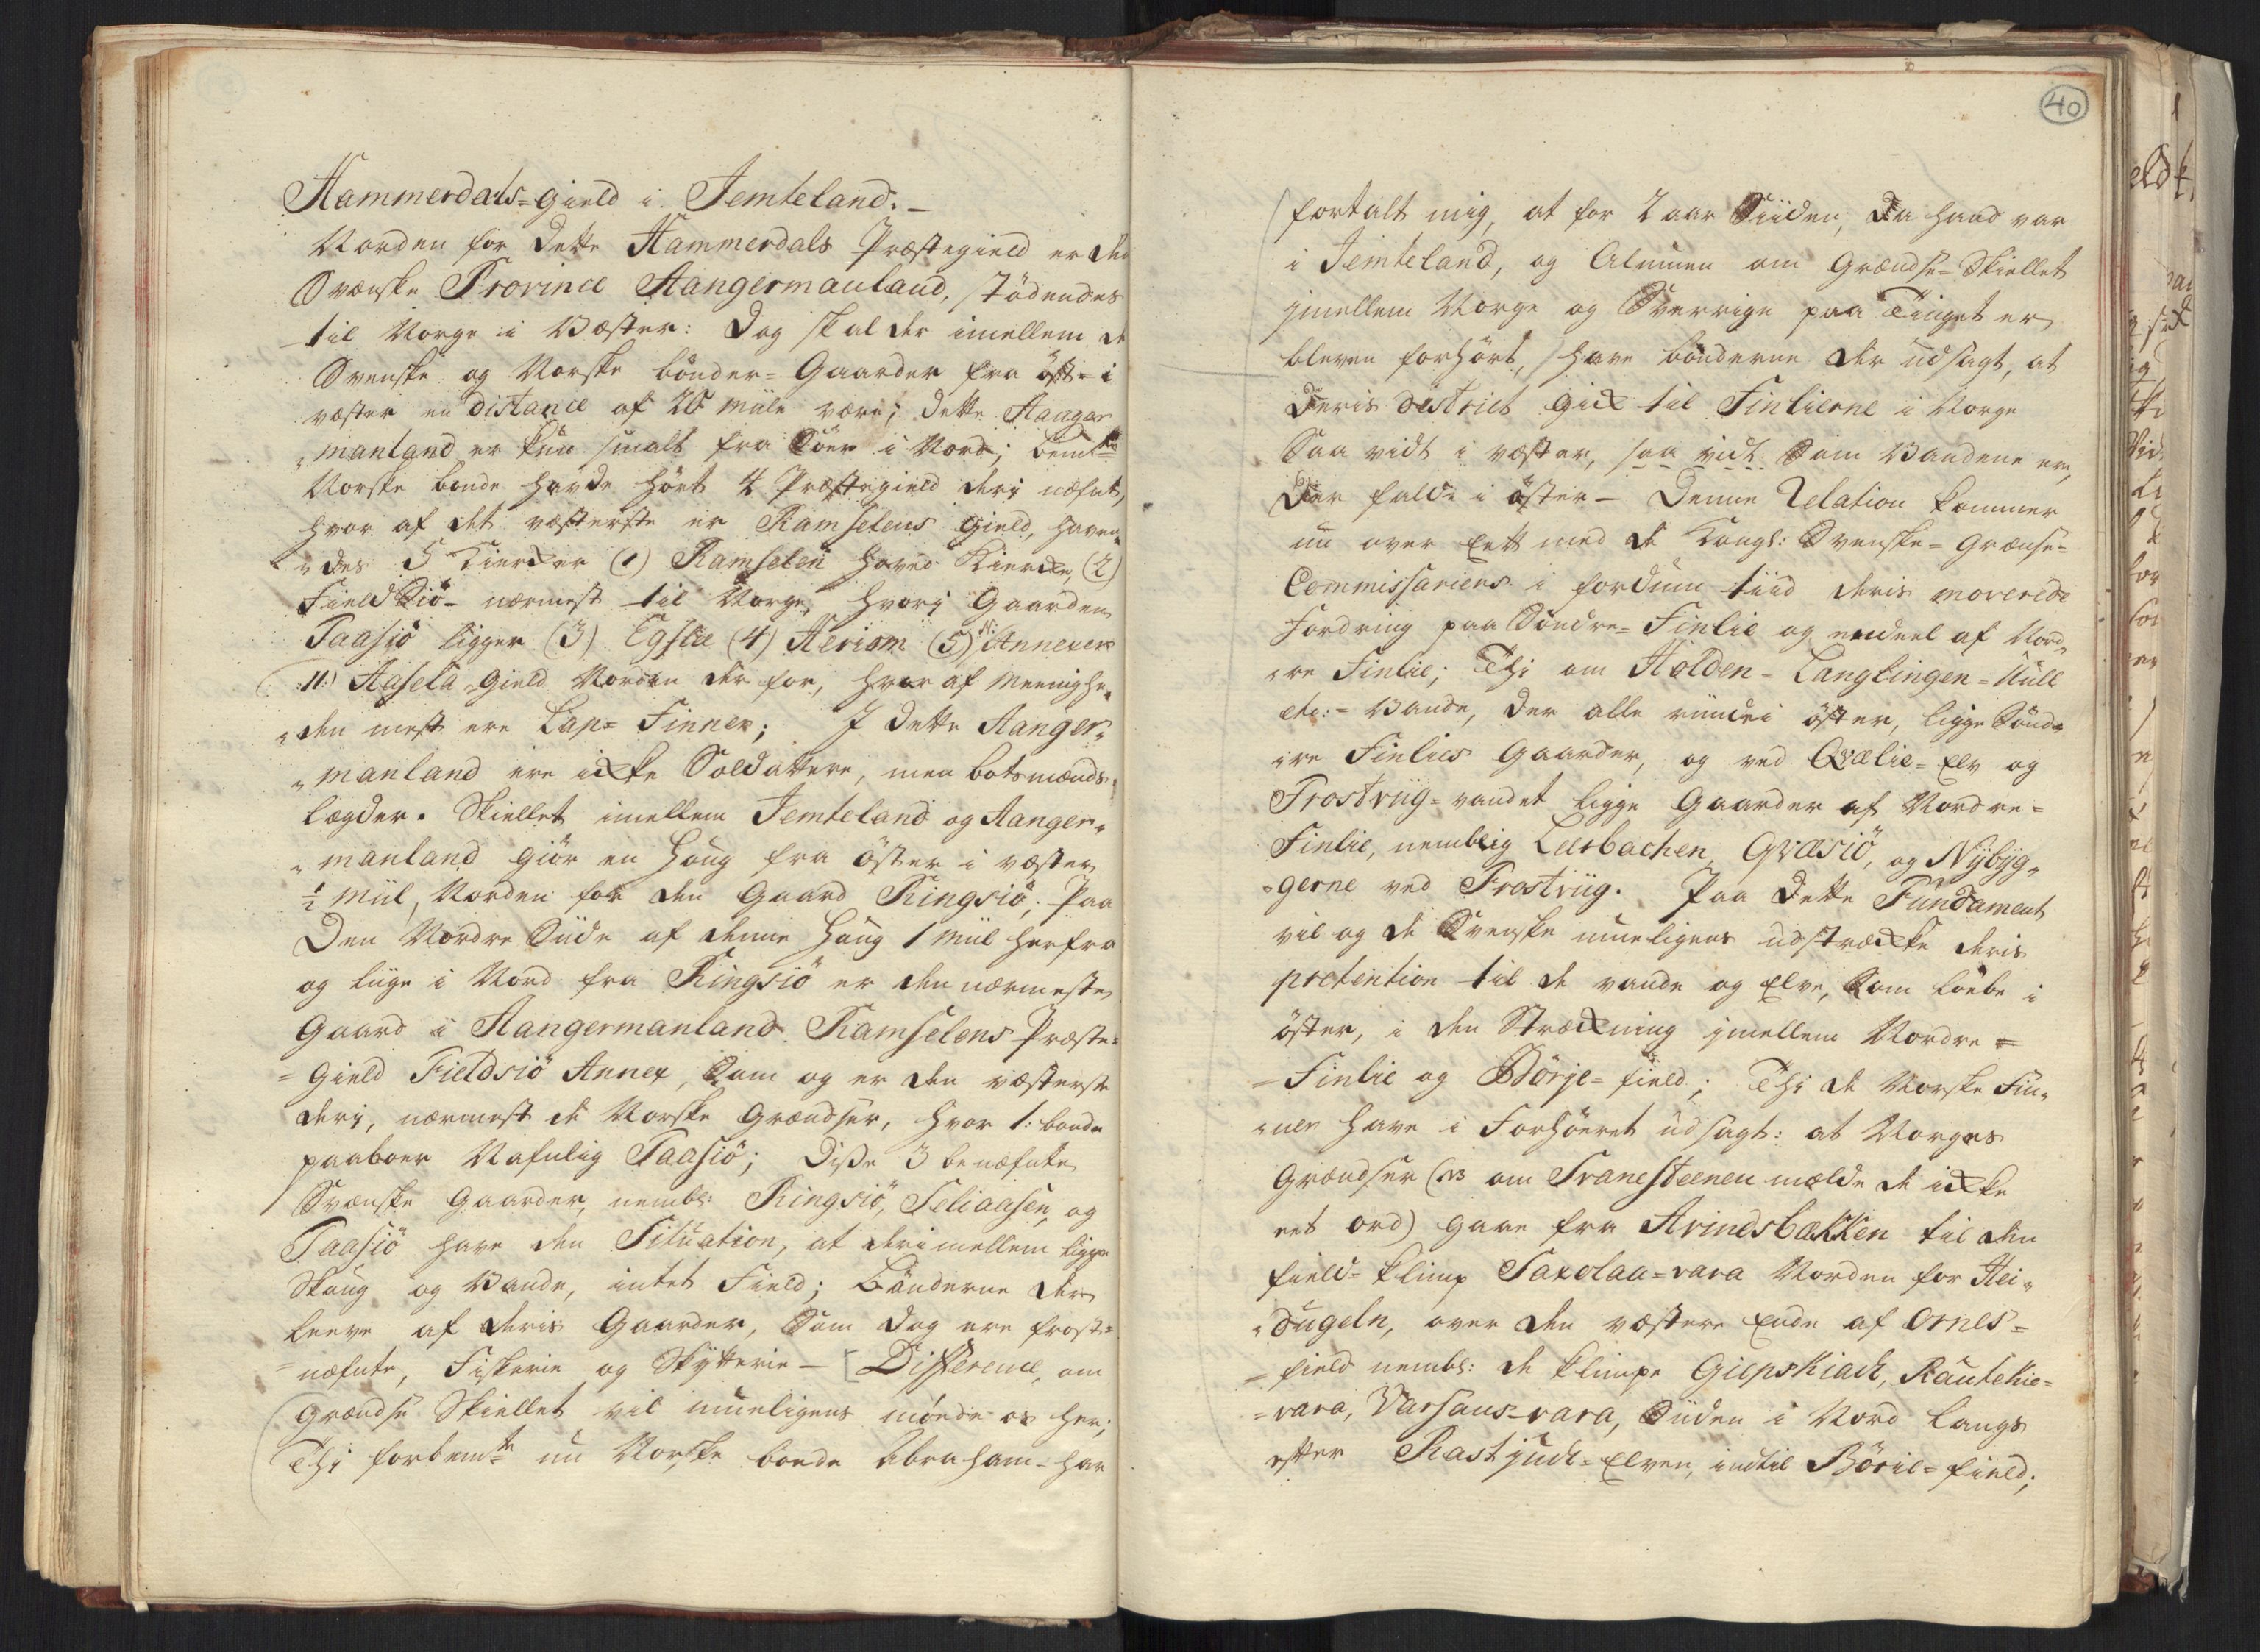 Hammerdals=gield i Jemteland.-
Norden for dette Hammerdals Præstegield er den
Svenske Province Aangermanland, stödendes
til Norge i Væster: Dog skal der imellem de
Svenske og Norske bönder=Gaarder fra öst= i
væster en distance af 20 miile være; dette Aanger
„manland er kun smalt fra Söer i Nord; bemte
Norske bonde havde hört 4 Præstegield derj næfnt,
hvor af det væsterste er Ramselens gield, haven„
„des 5 Kiercker (1) Ramselen Hoved Kiercke, (2)
Field Siö- nærmest til Norge, hvorj Gaarden
Taasiö ligger (3) Egslee (4) Heriom (5) Annexer
:/: Aasela Gield Norden der for, hvor af Meenighe„
„den mest ere Lap= Finner; I dette Aanger„
„manland ere icke Soldattere, men botsmænds
lægder. Skiellet imellem Jemteland og Aanger„
„manland giör en Houg fra öster i væster
½ Miil, Norden for den Gaard Ringsiö; Paa
Den Nordre Siide af denne Houg 1 miil herfra
og liige i Nord fra Ringsiö er den nærmeste
Gaard i Aangermanland Ramselens Præste=
=gield Fieldsiö Annex, som og er den væsterste
derj, nærmest de Norske Grændser, hvor 1: bonde
paaboer Nafnlig Taasiö; Disse 3 benæfnte
Svenske Gaarder, nembl: Ringsiö, Seliaasen, og
Taasiö have den Situation, at derimellem ligge
Skoug og Vande, intet Field; Bönderne der
leeve af deris Gaarder, som dog ere frost=
=næfnte, Fiskerie og Skytterie- [Difference, om
Grændse Skiellet vil mueligens möede os her;
Thj forbemte nu Norske bonde Abraham- har
40
fortalt mig, at for 2 aar Siiden, da hand var
i Jemteland, og Almuen om Grændse=Skiellet
jmellem Norge og Sverrige paa Tinget er
bleven forhört, have bönderne der udsagt, at
deris District gick til Finlierne i Norge
Saa vidt i væster, saa vidt som Vandene ere,
der falde i öster- Denne Relation kommer
nu over eett med de Kongl: Svenske= Grænse=
Commissariers i fordum tiid deris moverede
Fordring paa Söndre= Finlie og endeel af Nord„
„re Finlie; Thj om Holden- Langlingen- Uull
etc:= Vande, der alle rinde i öster, ligge Sönd„
„re Finlies Gaarder, og ved Qvælie= Elv og
Frostviig=vandet ligge Gaarder af Nordre=
Finlie, nemblig Leerbachen, Qvæsiö, og Nÿbÿg„
„gerne ved Frostviig. Paa dette Fundament
vil og de Svenske mueligens udstrække deris
pretention til de vande og Elve, som löebe i
öster, i den Strækning jmellem Nordre =
=Finlie og Börje=field; Thj de Norske Fin„
„ner have i Forhöeret udsagt: at Norges
Grændser (NB om Tranesteenen mælde de icke
eet ord) gaae fra Arinesbækken til den
field=klimp Saxelaa=vara Norden for Hei„
„dugeln, over den væstere Ende af Ornes=
=field nembl: de klimpe Giepskiack, Rautekie=
=vara, Varsaus=vara, Siiden i Nord langs
efter Rastjuck=Elven, indtil Börie=field;